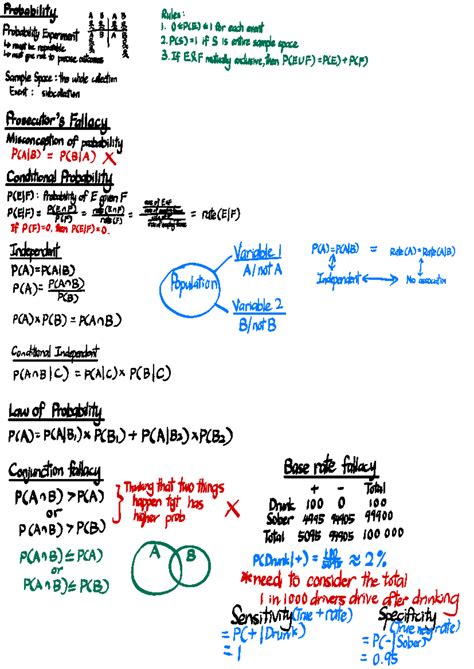 Probability
Probability Experiment
↳ must be repeatable
↳ must give rise to precise outcomes
A B A B
Sample Space : the whole collection
Event : subcollection
Rules:
1. 0≤P(E)≤1 for each event
2. P(S)=1 if S is entire sample space
3. If E&F mutually exclusive, then P(E∪F)=P(E)+P(F)
Prosecutor's Fallacy
Misconception of probability
P(A|B) = P(B|A) X
Conditional Probability
P(E|F) : Probability of E given F
P(E|F) = P(E∩F)/P(F) = rate(E∩F)/rate(F) = = rate(E|F)
If P(F)=0, then P(E|F)=0.
Independent
P(A)=P(A|B)
P(A)= P(A∩B)/P(B)
P(A)×P(B) = P(A∩B)
Population
Variable 1
A/not A
Variable 2
B/not B
P(A)=P(A|B) = Rate(A)=Rate(A|B)
Independent ↔ No association
Conditional Independent
P(A∩B|C) = P(A|C)×P(B|C)
Law of Probability
P(A)=P(A|B₁)×P(B₁) + P(A|B₂)×P(B₂)
Conjunction fallacy
P(A∩B)>P(A)
or
P(A∩B)>P(B)
Thinking that two things
happen tgt has
higher prob
X
P(A∩B)≤P(A)
or
P(A∩B)≤P(B)
A B
Base rate fallacy
+ - Total
Drunk 100 0 100
Sober 4995 94905 99900
Total 5095 94905 100 000
P(Drunk|+) = 100/5095 ≈ 2%
*need to consider the total
1 in 1000 drivers drive after drinking
Sensitivity (True + rate)
= P(+|Drunk)
= 1
Specificity
(True neg rate)
= P(-|Sober)
= 0.95